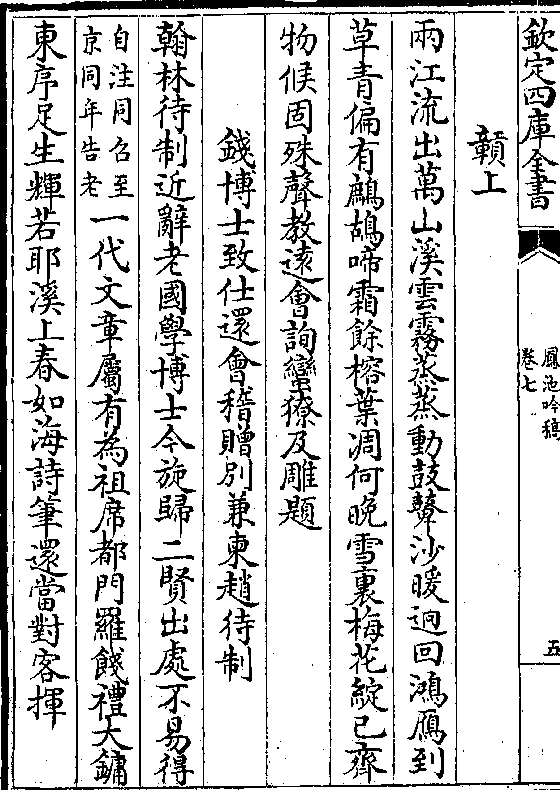 欽定四庫全書
鳳池吟稿
卷七
五
贛上
兩江流出萬山溪雲霧蒸蒸動鼓鼙沙暖逈回鴻鴈到
草青偏有鷓鴣啼霜餘榕葉凋何晚雪裏梅花綻已齊
物候固殊聲教逺會詢蠻獠及雕題
錢博士致仕還會稽贈別兼柬趙待制
翰林待制近辭老國學博士今旋歸二賢出處不易得
自注同召至
京同年告老
一代文章屬有為祖席都門羅餞禮大鏞
東序足生輝若耶溪上春如海詩筆還當對客揮